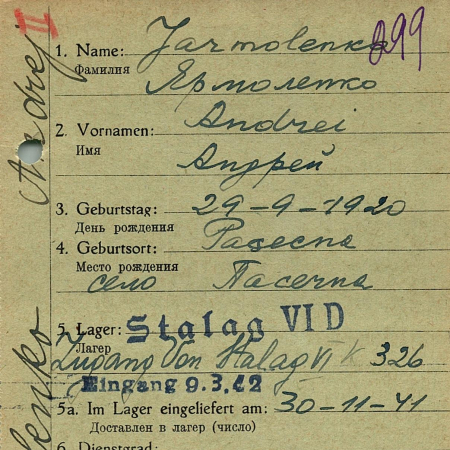 II
899
Andrej
1. Name: Jarmolenka
Фамилия Ярмоленко
2. Vornamen: Andrei
Имя Андрей
3. Geburtstag: 29-9-1920
День рождения
4. Geburtsort:
Место рождения
село Пасечна
5. Lager: Stalag VI D
Лагерь
Zugang von Stalag VI K 326
Eingang 9.3.42
5a. Im Lager eingeliefert am: 30-11-41
Доставлен в лагерь (число)
6. Dienstgrad:
enko